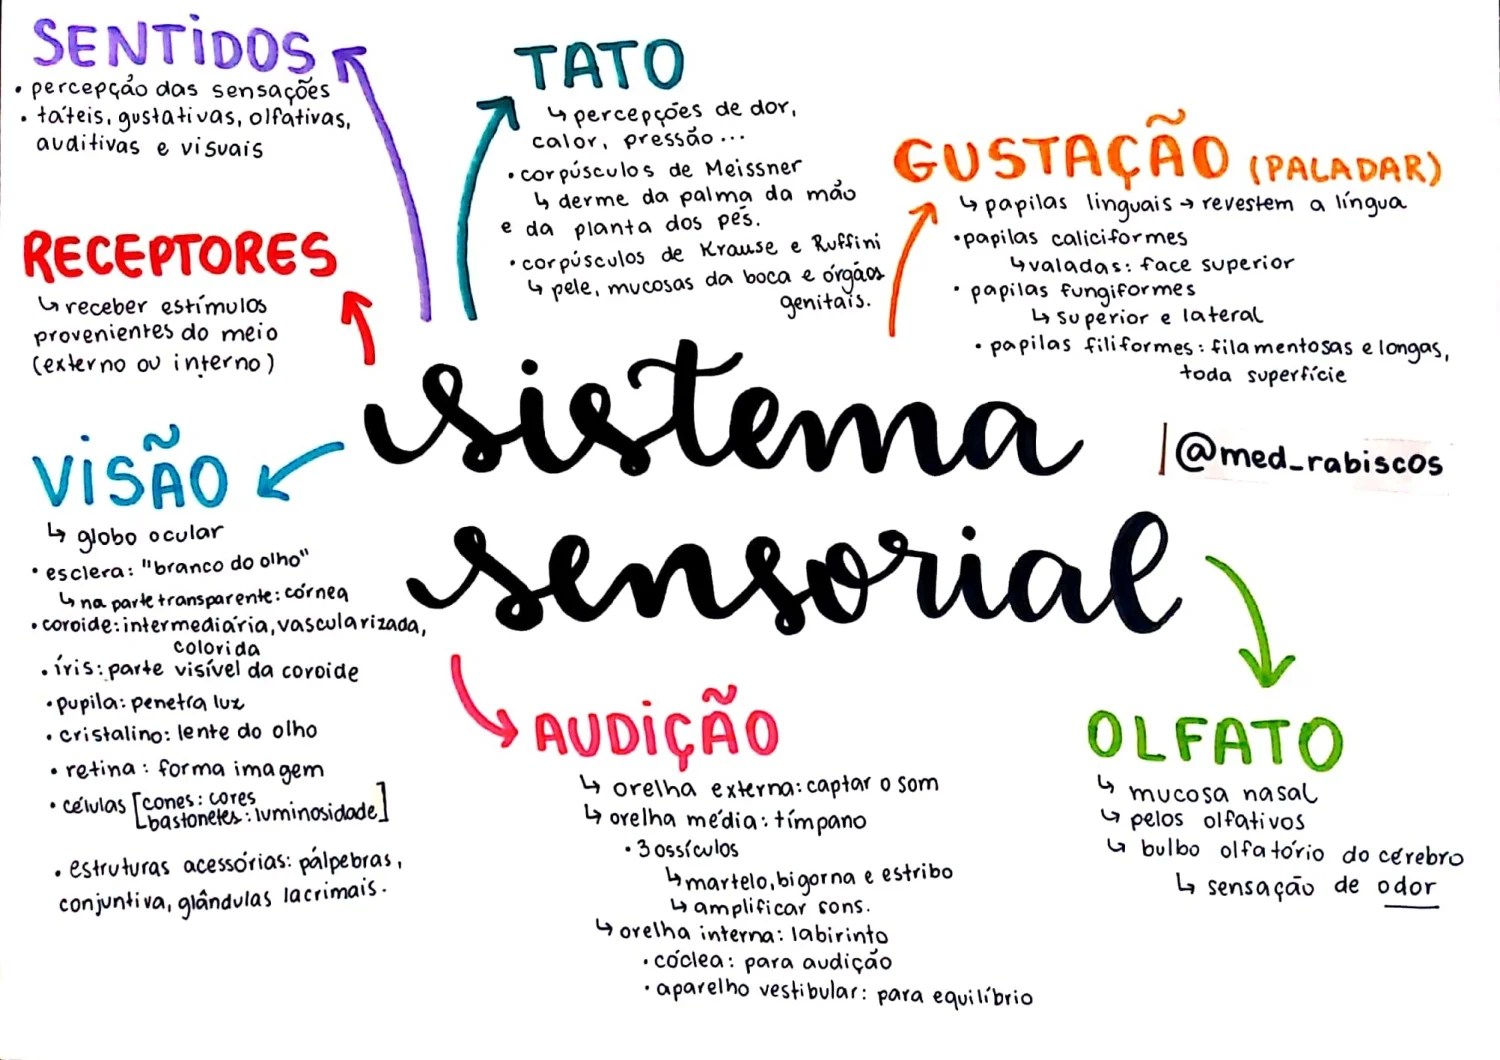 SENTIDOS
• percepção das sensações
• táteis, gustativas, olfativas,
auditivas e visuais
TATO
↳ percepções de dor,
calor, pressão...
• corpúsculos de Meissner
↳ derme da palma da mão
e da planta dos pés.
• corpúsculos de Krause e Ruffini
↳ pele, mucosas da boca e órgãos
genitais.
GUSTAÇÃO (PALADAR)
↳ papilas linguais → revestem a língua
• papilas caliciformes
↳ valadas: face superior
• papilas fungiformes
↳ superior e lateral
• papilas filiformes: filamentosas e longas,
toda superfície
RECEPTORES
↳ receber estímulos
provenientes do meio
(externo ou interno)
sistema
sensorial
@med_rabiscos
VISÃO
↳ globo ocular
• esclera: "branco do olho"
↳ na parte transparente: córnea
• coroide: intermediária, vascularizada,
colorida
• íris: parte visível da coroide
• pupila: penetra luz
• cristalino: lente do olho
• retina: forma imagem
• células [cones: cores
bastonetes: luminosidade]
• estruturas acessórias: pálpebras,
conjuntiva, glândulas lacrimais.
AUDIÇÃO
↳ orelha externa: captar o som
↳ orelha média: tímpano
• 3 ossículos
↳ martelo, bigorna e estribo
↳ amplificar sons.
↳ orelha interna: labirinto
• cóclea: para audição
• aparelho vestibular: para equilíbrio
OLFATO
↳ mucosa nasal
↳ pelos olfativos
↳ bulbo olfatório do cérebro
↳ sensação de odor